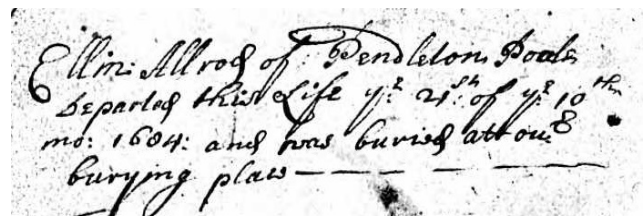 Ellin: Allrod of Pendleton Poole
Departed this Life yᵉ 21ˢᵗ: of yᵉ 10ᵗʰ
mo: 1684: and was buried at ouʳ
burying place